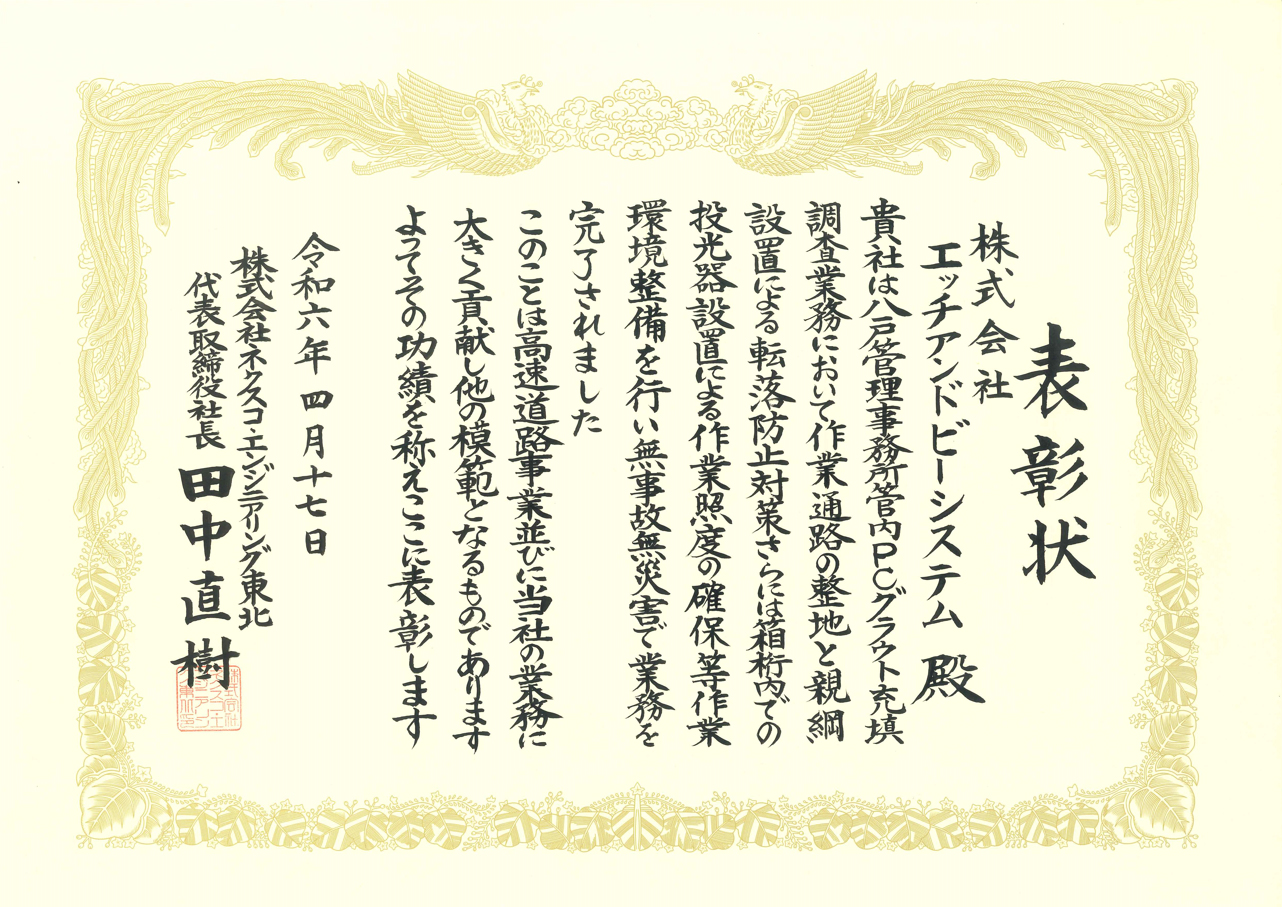 表彰状
株式会社
エッチアンドビーシステム 殿
貴社は八戸管理事務所管内PCグラウト充填
調査業務において作業通路の整地と親綱
設置による転落防止対策さらには箱桁内での
投光器設置による作業照度の確保等作業
環境整備を行い無事故無災害で業務を
完了されました
このことは高速道路事業並びに当社の業務に
大きく貢献し他の模範となるものであります
よってその功績を称えここに表彰します
令和六年四月十七日
株式会社ネクスコ・エンジニアリング東北
代表取締役社長 田中直樹